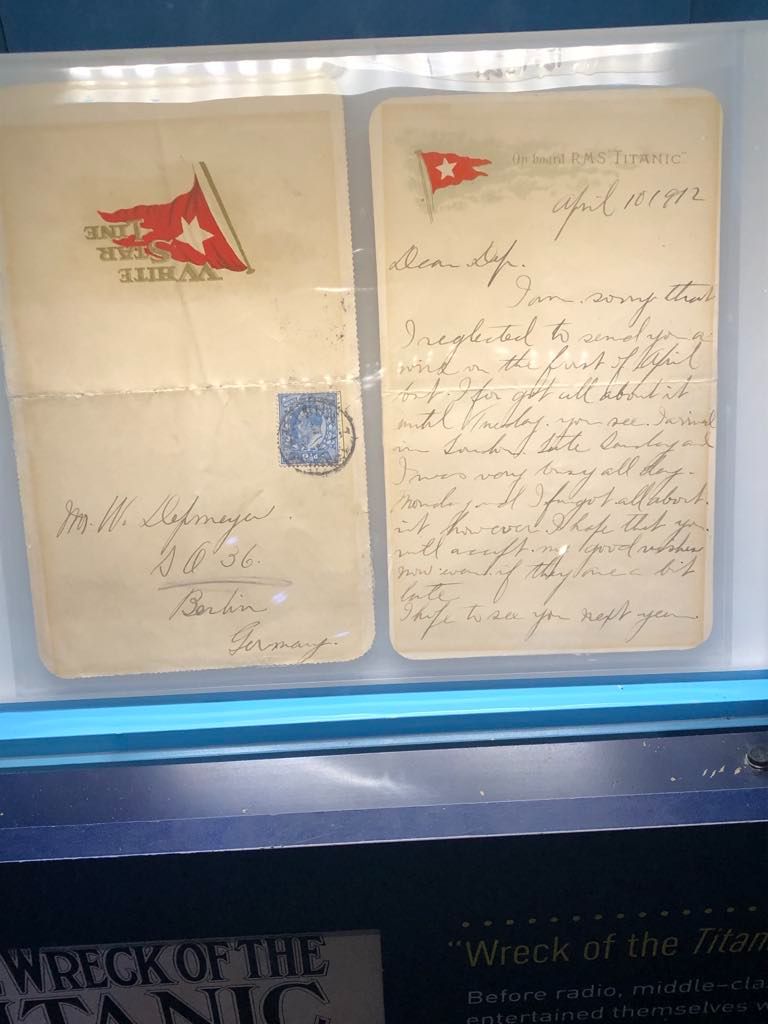 WHITE
STAR
LINE
Mr. W. Depmeyer.
S O 36.
Berlin
Germany.
On board RMS "TITANIC"
April 10 1912
Dear Dep.
I am sorry that
I neglected to send you a
wire on the first of April
but I for got all about it
until Tuesday. you see I arrived
in London late Sunday and
I was very busy all day.
Monday and I forgot all about.
it however I hope that you
will accept my good wishes
now even if they are a bit
late.
I hope to see you next year.
WRECK OF THE
TITANIC
"Wreck of the Titan
Before radio, middle-cla
entertained themselves w